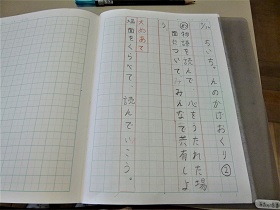 7/10 ちいちゃんのかげおくり②
め 物語を読んで 心をうたれた場
面についてみんなで共有しよ
う。
大めあて
場面をくらべて 読んでいこう。